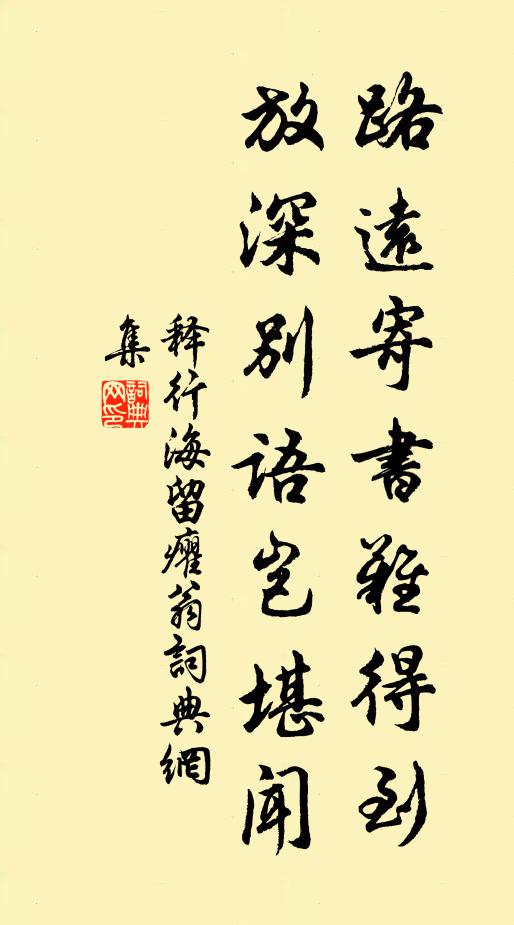 路遠寄書難得到
放深別語豈堪聞
释行海留癯翁詞典網
集
詞典網印